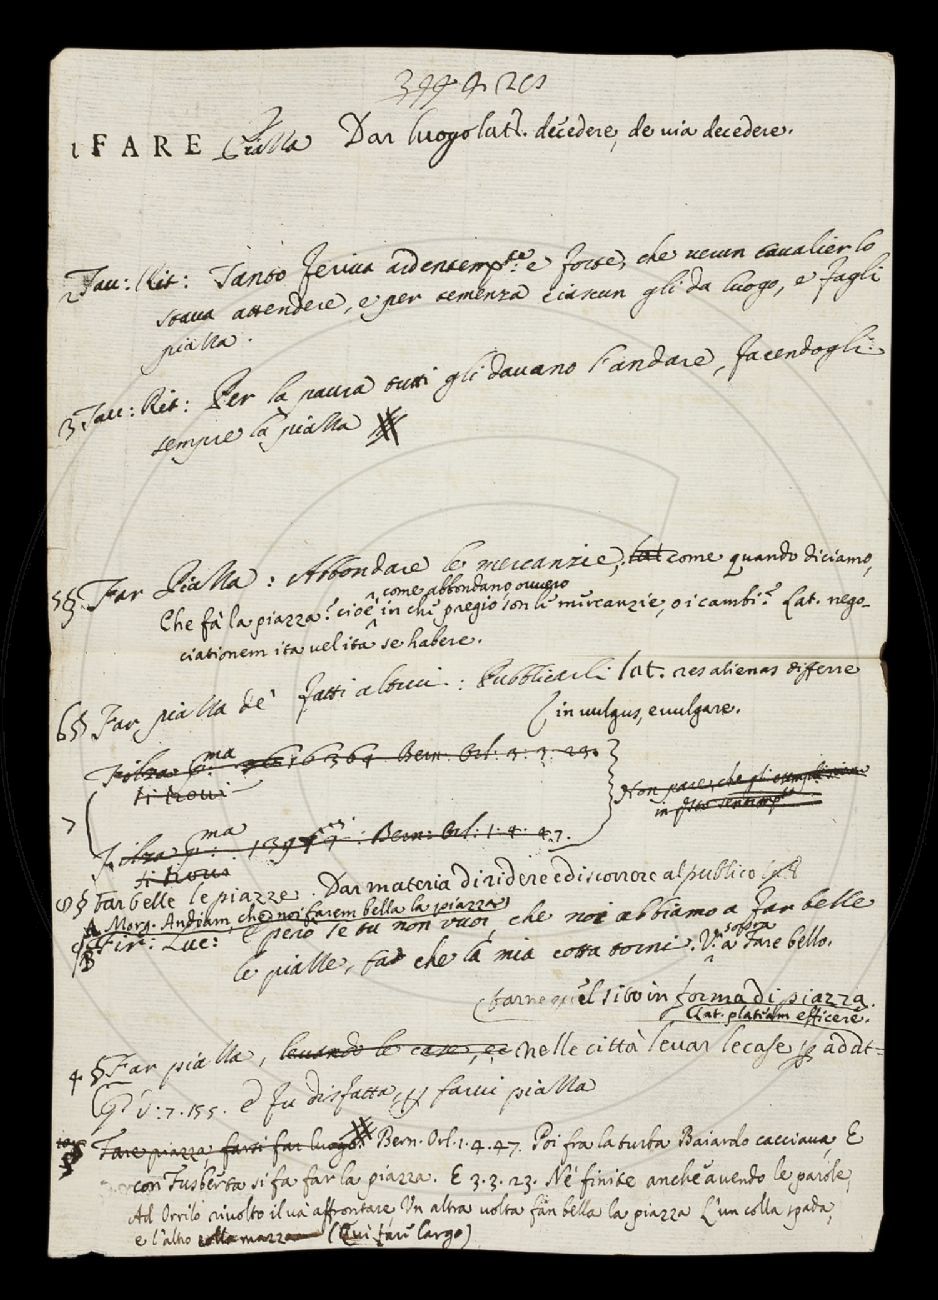 1 FARE Piazza Dar luogo latī. decedere, de via decedere.
2 Tau: Rit: Tanto feriva ardentemp.te e forte, che verun cavalier lo
stava attendere, e per temenza ciascun gli da luogo, e fagli
piazza.
3 Tau: Rit: Per la paura tutti gli davano l'andare, facendogli
sempre la piazza
5§ Far Piazza: Abbondare le mercanzie, lat come quando diciamo,
come abbondano ovvero
Che fà la piazza? cioè in che pregio son le mercanzie, o i cambi? Lat. nego-
ciationem ita vel ita se habere.
6§ Far piazza de' fatti altrui: Pubblicarli lat. res alienas differre
in vulgus, evulgare.
Filza p.ma 16364 Bern. Orl: 3. 3. 23.
si trovi
Non pare, che gli
in
7
Filza p.ma Bern: Orl: 1. 4. 47.
si trovi
8§ Far belle le piazze. Dar materia di ridere e discorrere al publico
A Morg. Andiam, che noi farem bella la piazza
9§ Fir: Luc: E però se tu non vuoi, che noi abbiamo a far belle
B
le piazze, fa che la mia cotta torni. V. sopra a Fare bello.
Farne quel sito in forma di piazza.
Lat. plateam efficere.
4 § Far piazza, levando le case, ec nelle città levar le case p adat=
G. V: 7. 155. E fu disfatta, p farvi piazza
Fare piazza, farsi far luogo. Bern. Orl. 1. 4. 47. Poi fra la turba Baiardo cacciava, E
con Fusberta si fa far la piazza. E 3. 3. 23. Né finite anche avendo le parole,
Ad Orrilo rivolto il va affrontare Un altra volta fan bella la piazza L'un colla spada,
e l'altro colla mazza (Qui farsi largo)